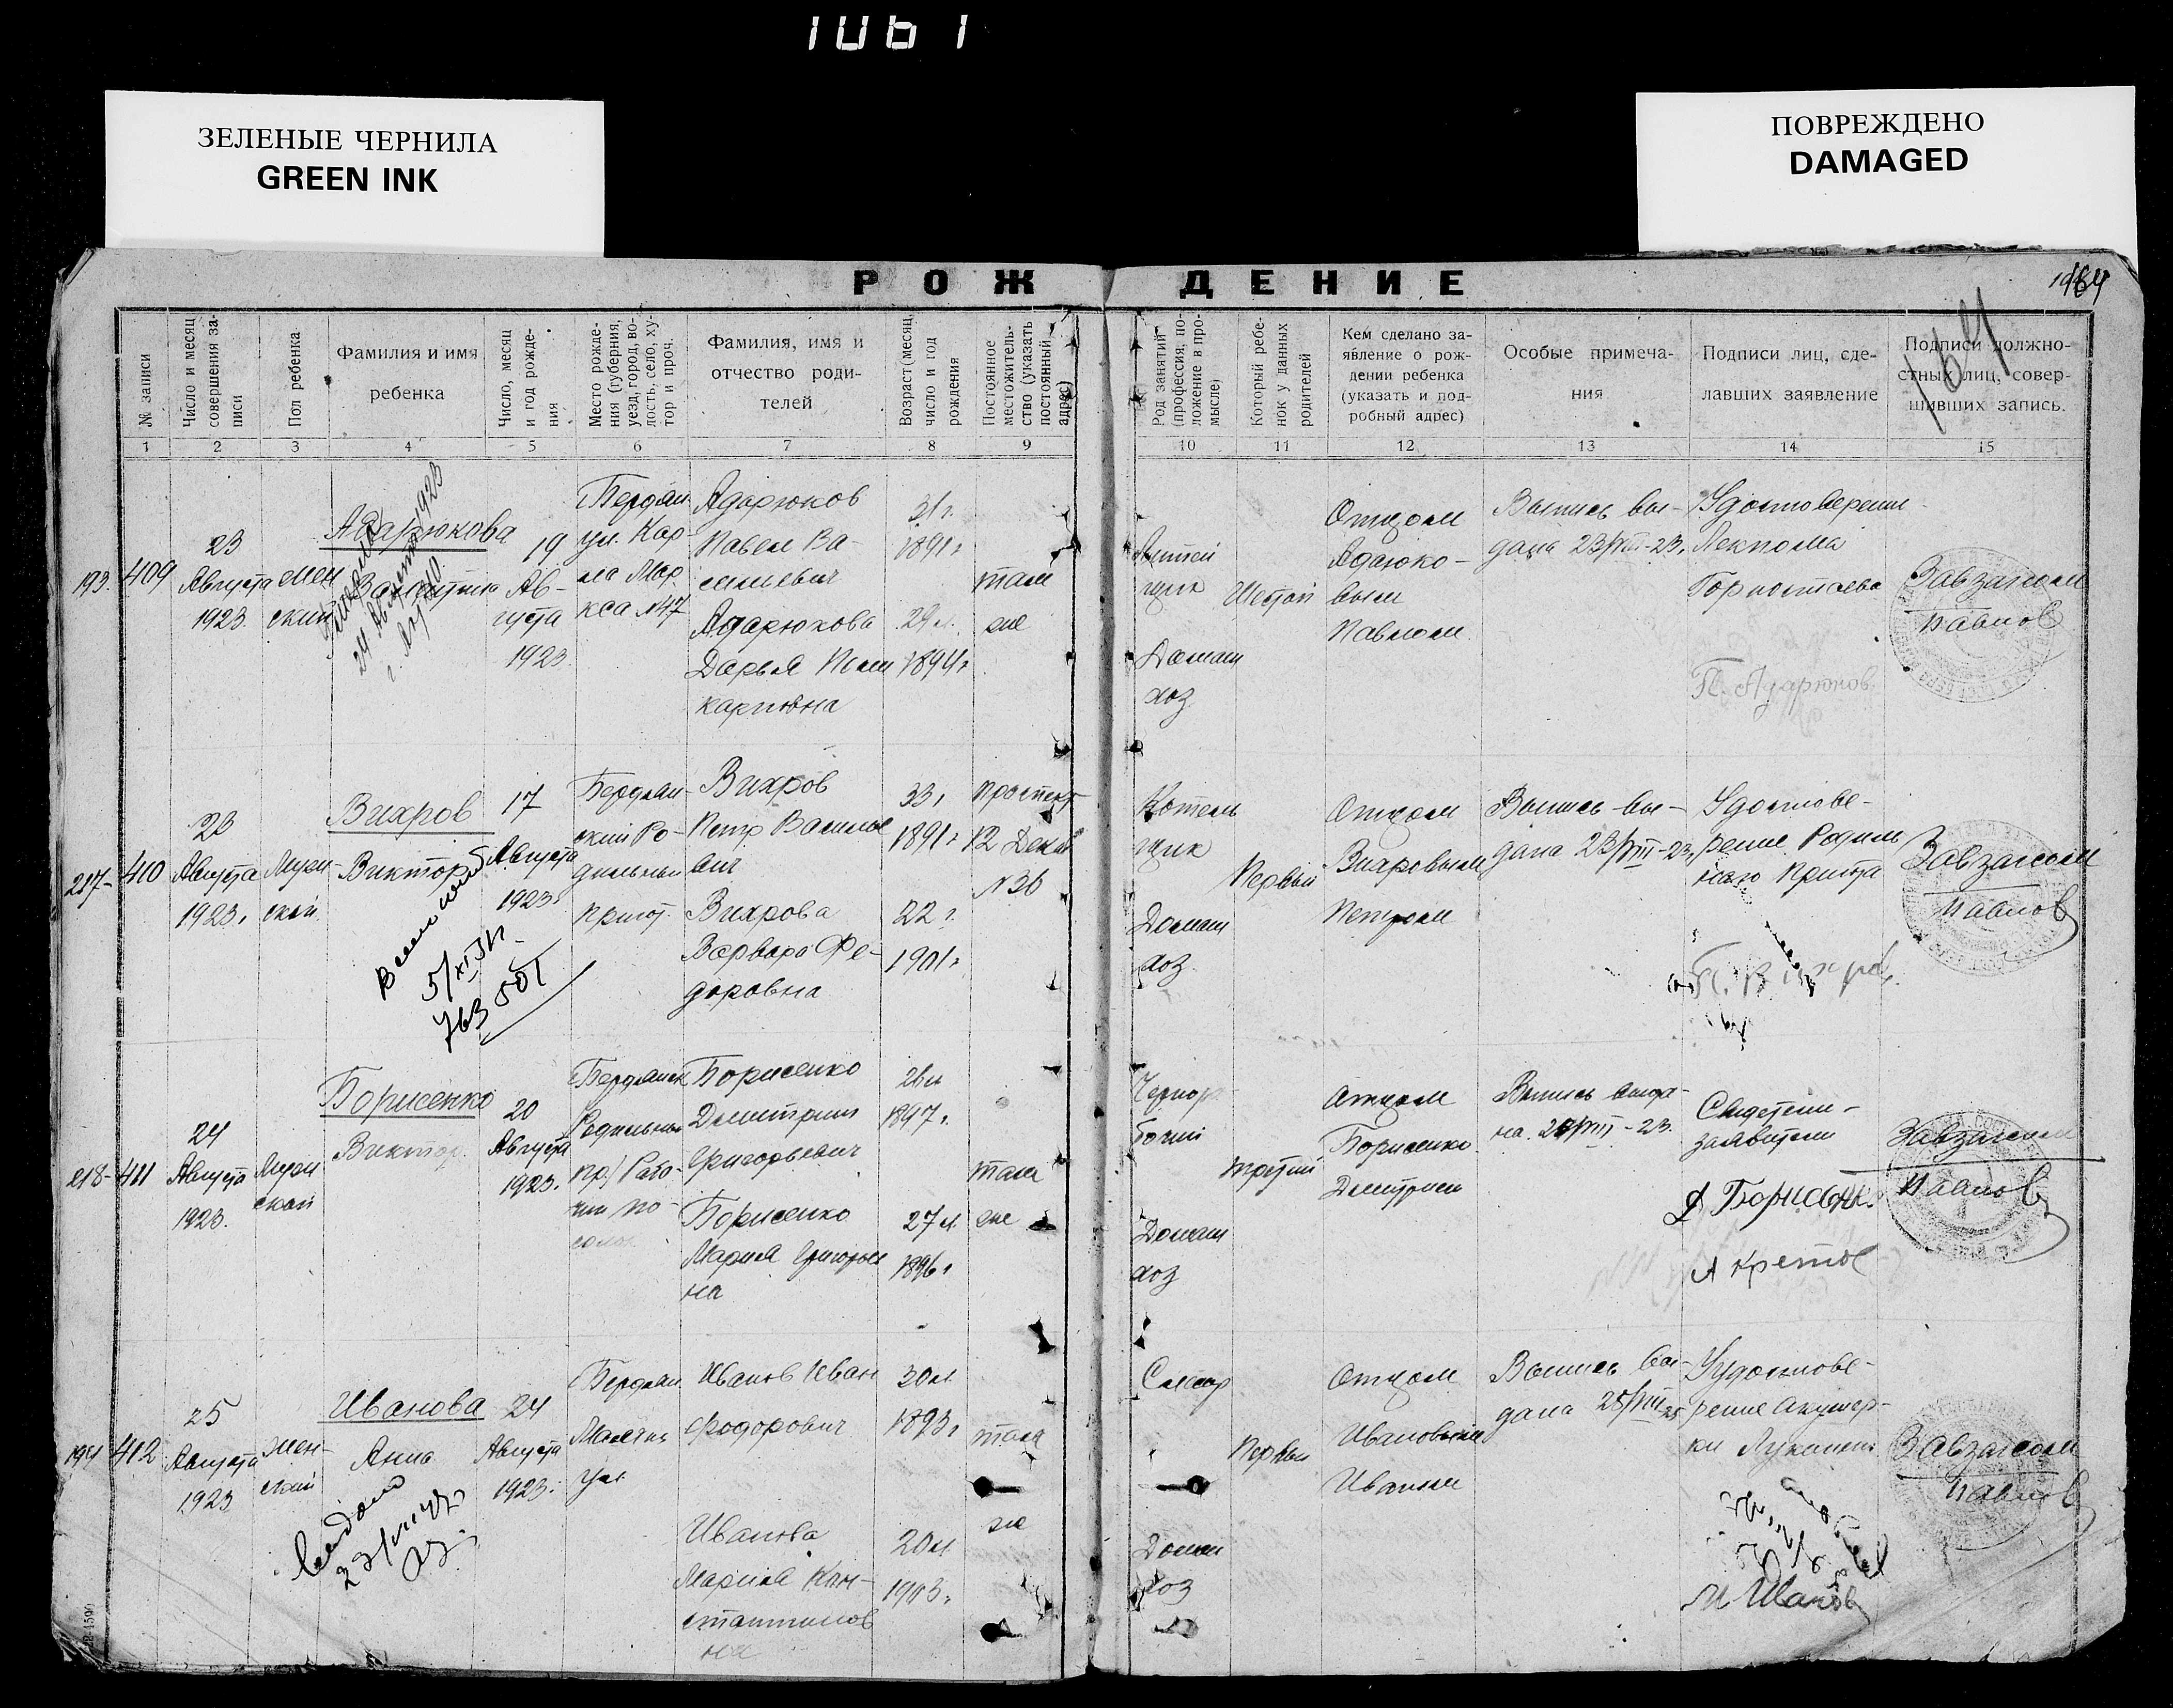 1061
ЗЕЛЕНЫЕ ЧЕРНИЛА
GREEN INK
ПОВРЕЖДЕНО
DAMAGED
РОЖДЕНИЕ
164
№ записи
Число и месяц
совершения за-
писи
Пол ребенка
Фамилия и имя
ребенка
Число, месяц
и год рожде-
ния
Место рожде-
ния (губерния,
уезд, город, во-
лость, село, ху-
тор и проч.
Фамилия, имя и
отчество роди-
телей
Возраст (месяц,
число и год
рождения
Постоянное
местожитель-
ство (указать
постоянный
адрес)
Род занятий
(профессия, по-
ложение в про-
мысле)
Который ребе-
нок у данных
родителей
Кем сделано за-
явление о рож-
дении ребенка
(указать и под-
робный адрес)
Особые примеча-
ния
Подписи лиц, сде-
лавших заявление
Подписи должно-
стных лиц, совер-
шивших запись.
1 2 3 4 5 6 7 8 9 10 11 12 13 14 15
193. 409
23
Августа
1923.
жен
ский
Адарюкова
Валентина
24 Августа 1923
19
Ав-
густа
1923.
Бердян
ул. Кар
ла Мар
кса №47
Адарюков
Павел Ва-
сильевич
Адарюкова
Дарья Поли
карповна
31 г.
1891 г
29 л.
1894 г
там
же
Литей
щик
Домаш
хоз
Шестой
Отцом
Адарюко-
вым
Павлом
Выпись вы-
дана 23/VIII-23.
Удостоверение
Лекпома
Горностаева
П. Адарюков
Завзагсом
Павлов
217- 410
23
Августа
1923.
Муж-
ской
Вихров
Виктор
5/XI
763501
17
Августа
1923.
Бердян-
ский Ро-
дильный
приют.
Вихров
Петр Василье
вич
Вихрова
Варвара Фе-
доровна
33.
1891 г
22 г.
1901 г
проспект
12 Декаб
№36
Котель
щик
Домаш
хоз.
Первый
Отцом
Вихровым
Петром
Выпись вы-
дана 23/VIII-23.
Удостове-
рение Родиль
ного Приюта
П. Вихров
Завзагсом
Павлов
218- 411
24
Августа
1923.
Муж
ской
Борисенко
Виктор.
20
Августа
1923.
Бердянск
Родильный
пр/ Рабо-
чий по-
селок
Борисенко
Дмитрий
Григорьевич
Борисенко
Мария Григорьев
на
26 л
1897 г.
27 л.
1896 г
там
же
Чернора
бочий
Домаш
хоз
третий
Отцом
Борисенко
Дмитрием
Выпись выда-
на. 24/VIII-23.
Свидетели-
заявители
Д Борисенк.
А Кретов
Завзагсом
Павлов
194 412
25
Августа
1923
жен-
ский
Иванова
Анна
24
Августа
1923.
Бердян
ул
Иванов Иван
Федорович
Иванова
Мария Кон-
стантинов
на
30 л.
1893 г
20 л
1903 г.
там
же
Слесар
Домаш
хоз
Первый
Отцом
Ивановым
Иваном
Выпись вы-
дана 25/VIII 23
Удостове-
рение Акушер-
ки
И Иванов
Завзагсом
Павлов